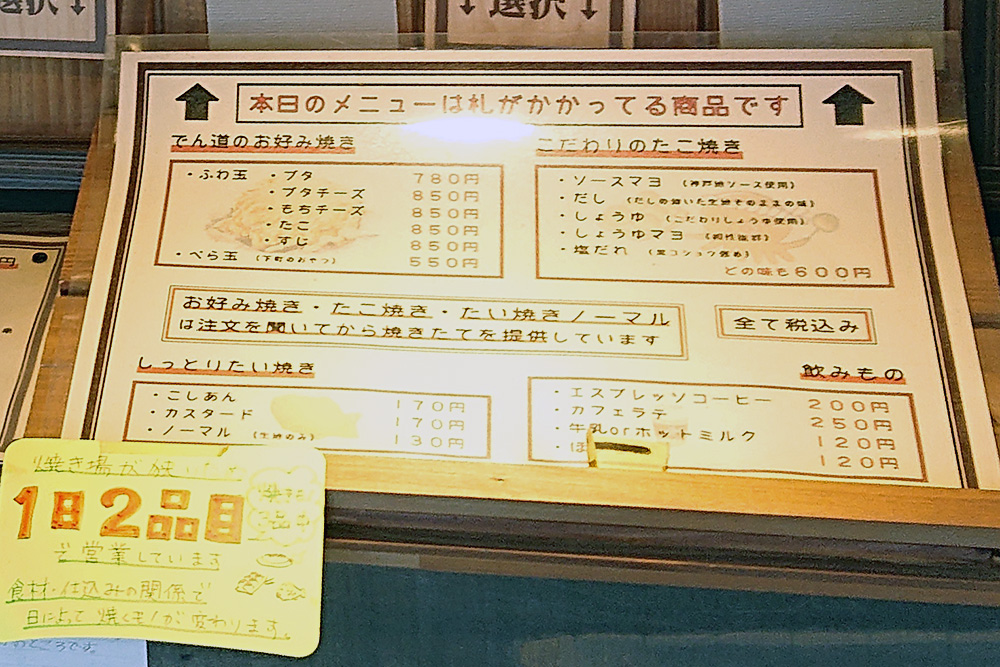 選択↓
↓選択↓
本日のメニューは札がかかってる商品です
でん道のお好み焼き
・ふわ玉 ・ブタ 780円
・ブタチーズ 850円
・もちチーズ 850円
・たこ 850円
・すじ 850円
・ぺら玉 (下町のおやつ) 550円
こだわりのたこ焼き
・ソースマヨ (神戸地ソース使用)
・だし (だしの効いた生地そのままの味)
・しょうゆ (こだわりしょうゆ使用)
・しょうゆマヨ (相性抜群)
・塩だれ (黒コショウ強め)
どの味も600円
お好み焼き・たこ焼き・たい焼きノーマル
は注文を聞いてから焼きたてを提供しています
全て税込み
しっとりたい焼き
・こしあん 170円
・カスタード 170円
・ノーマル (生地のみ) 130円
飲みもの
・エスプレッソコーヒー 200円
・カフェラテ 250円
・牛乳orホットミルク 120円
・ほ 120円
焼き場が狭い
1日2品目
で営業しています
食材・仕込みの関係で
日によって焼くモノが変わります。